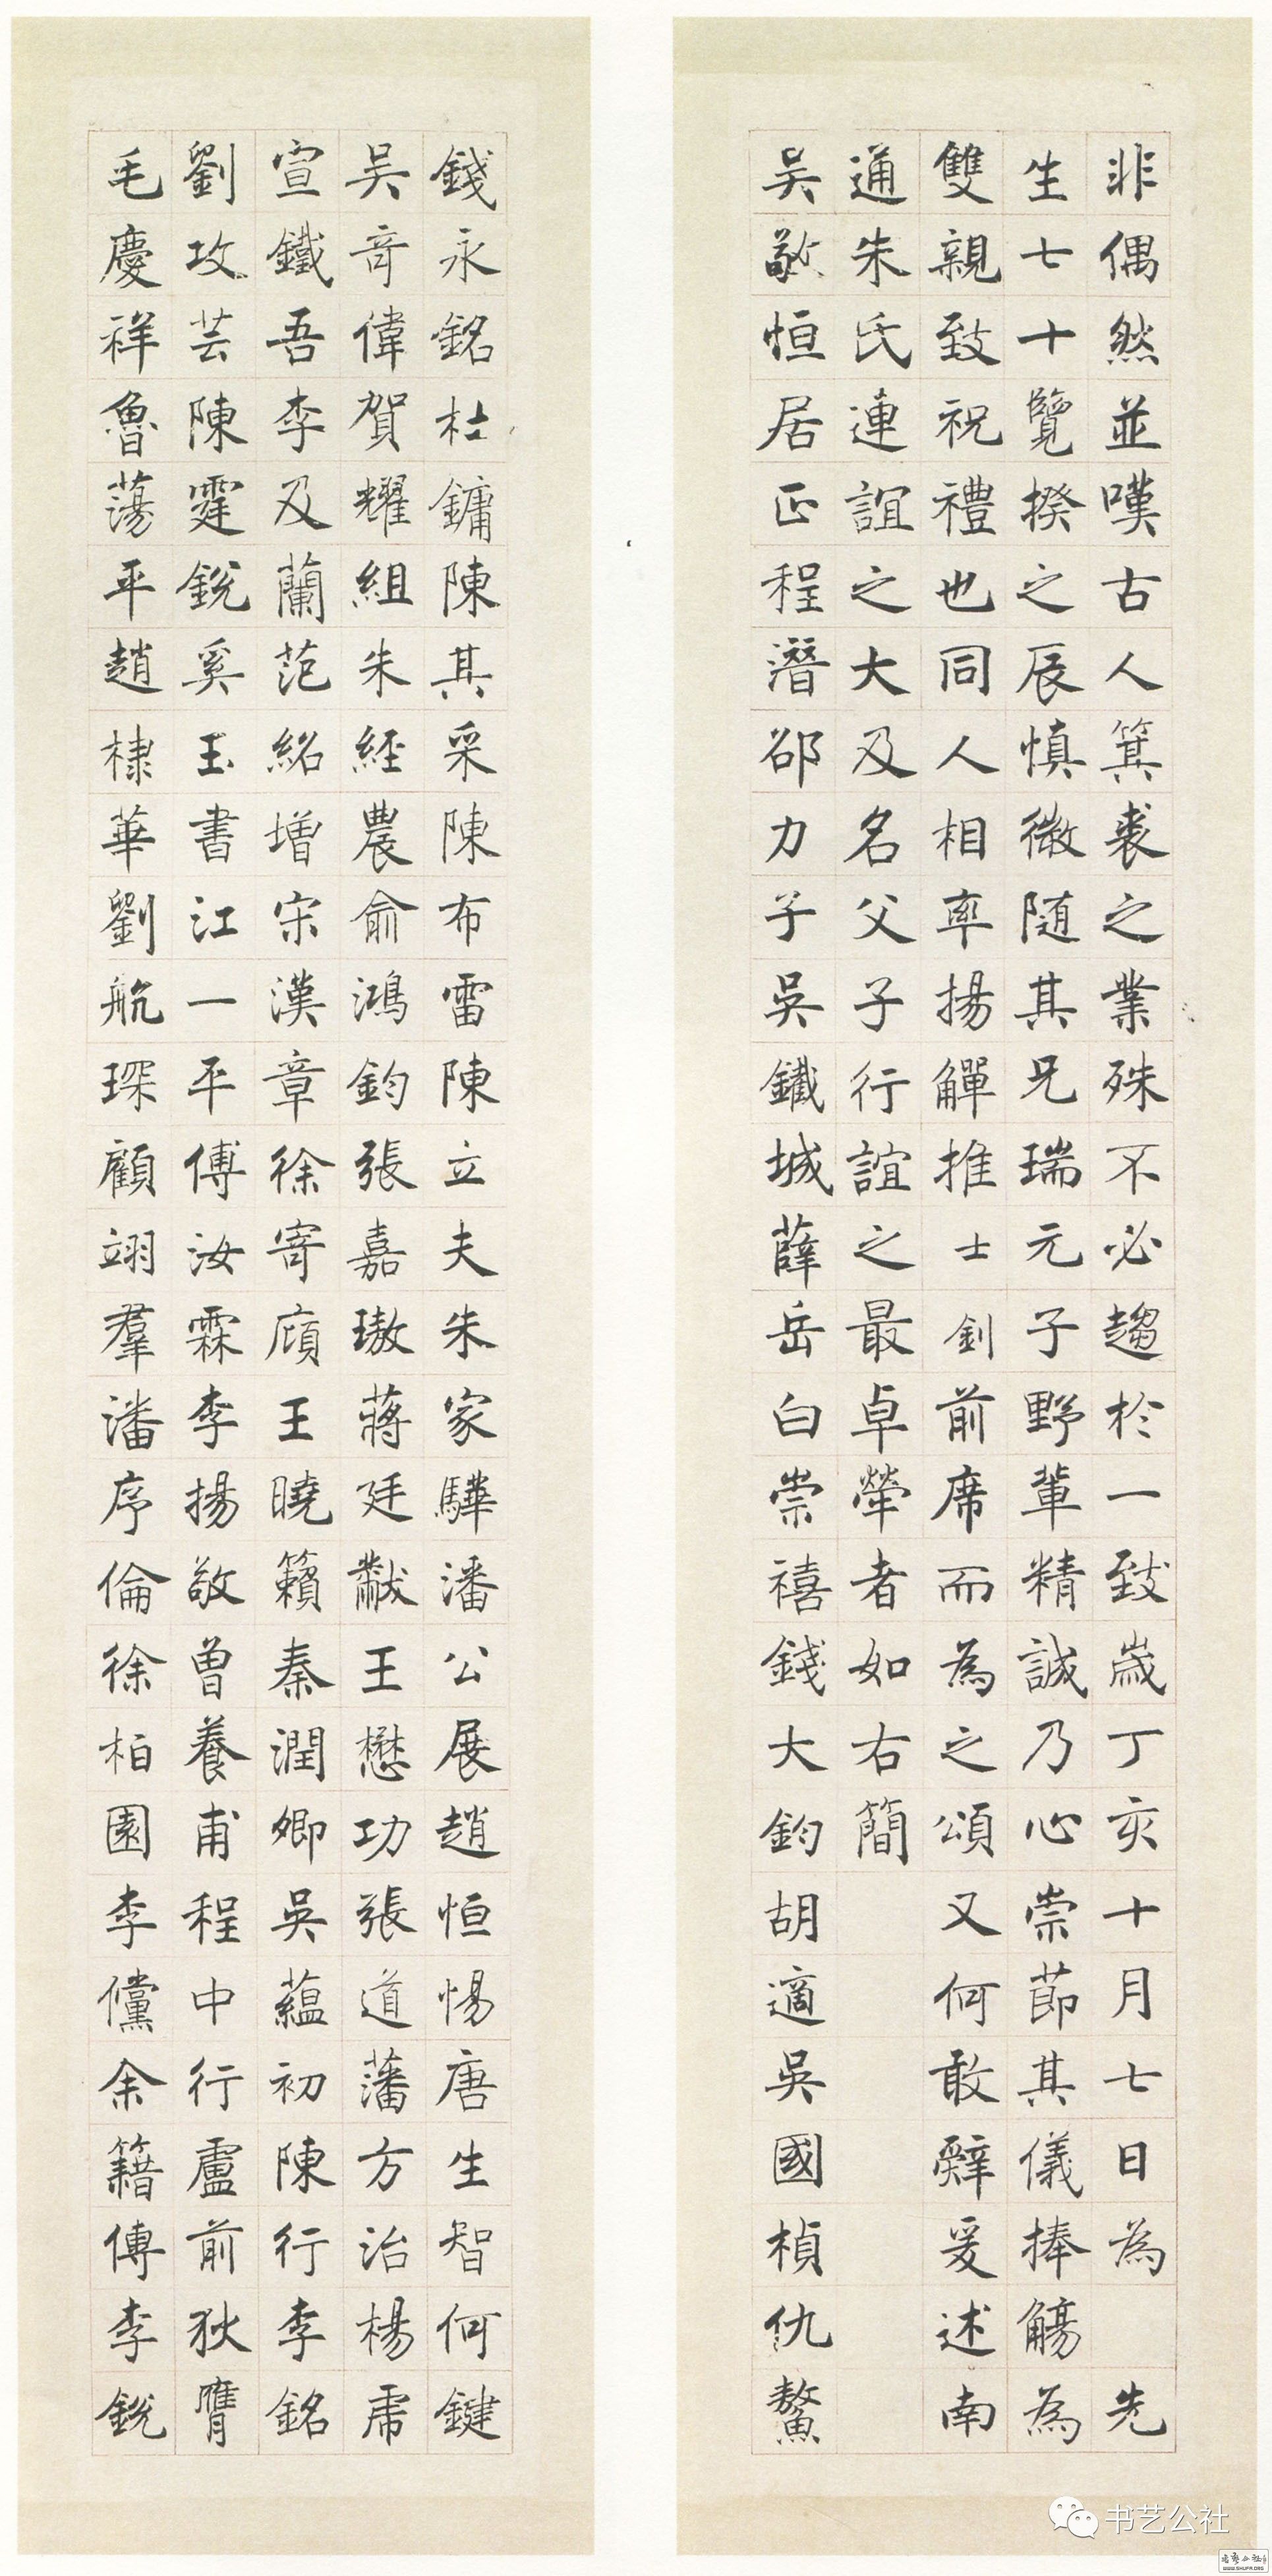 非偶然並嘆古人箕裘之業殊不必趨於一致歲丁亥十月七日為 先
生七十覽揆之辰慎微随其兄瑞元子野輩精誠乃心崇節其儀捧觴為
雙親致祝禮也同人相率揚觶推士釗前席而為之頌又何敢辭爰述南
通朱氏連誼之大及名父子行誼之最卓犖者如右簡
吴敬恒居正程潛邵力子吳鐵城薛岳白崇禧錢大鈞胡適吳國楨仇鰲
錢永銘杜鏞陳其采陳布雷陳立夫朱家驊潘公展趙恒惕唐生智何鍵
吴奇偉賀耀組朱經農俞鴻鈞張嘉璈蔣廷黻王懋功張道藩方治楊虎
宣鐵吾李及蘭范紹增宋漢章徐寄廎王曉籟秦潤卿吳蘊初陳行李銘
劉攻芸陳霆銳奚玉書江一平傅汝霖李揚敬曾養甫程中行盧前狄膺
毛慶祥魯蕩平趙棣華劉航琛顧翊羣潘序倫徐柏園李儻余籍傳李銳
书艺公社
WWW.SHUFA.ORG